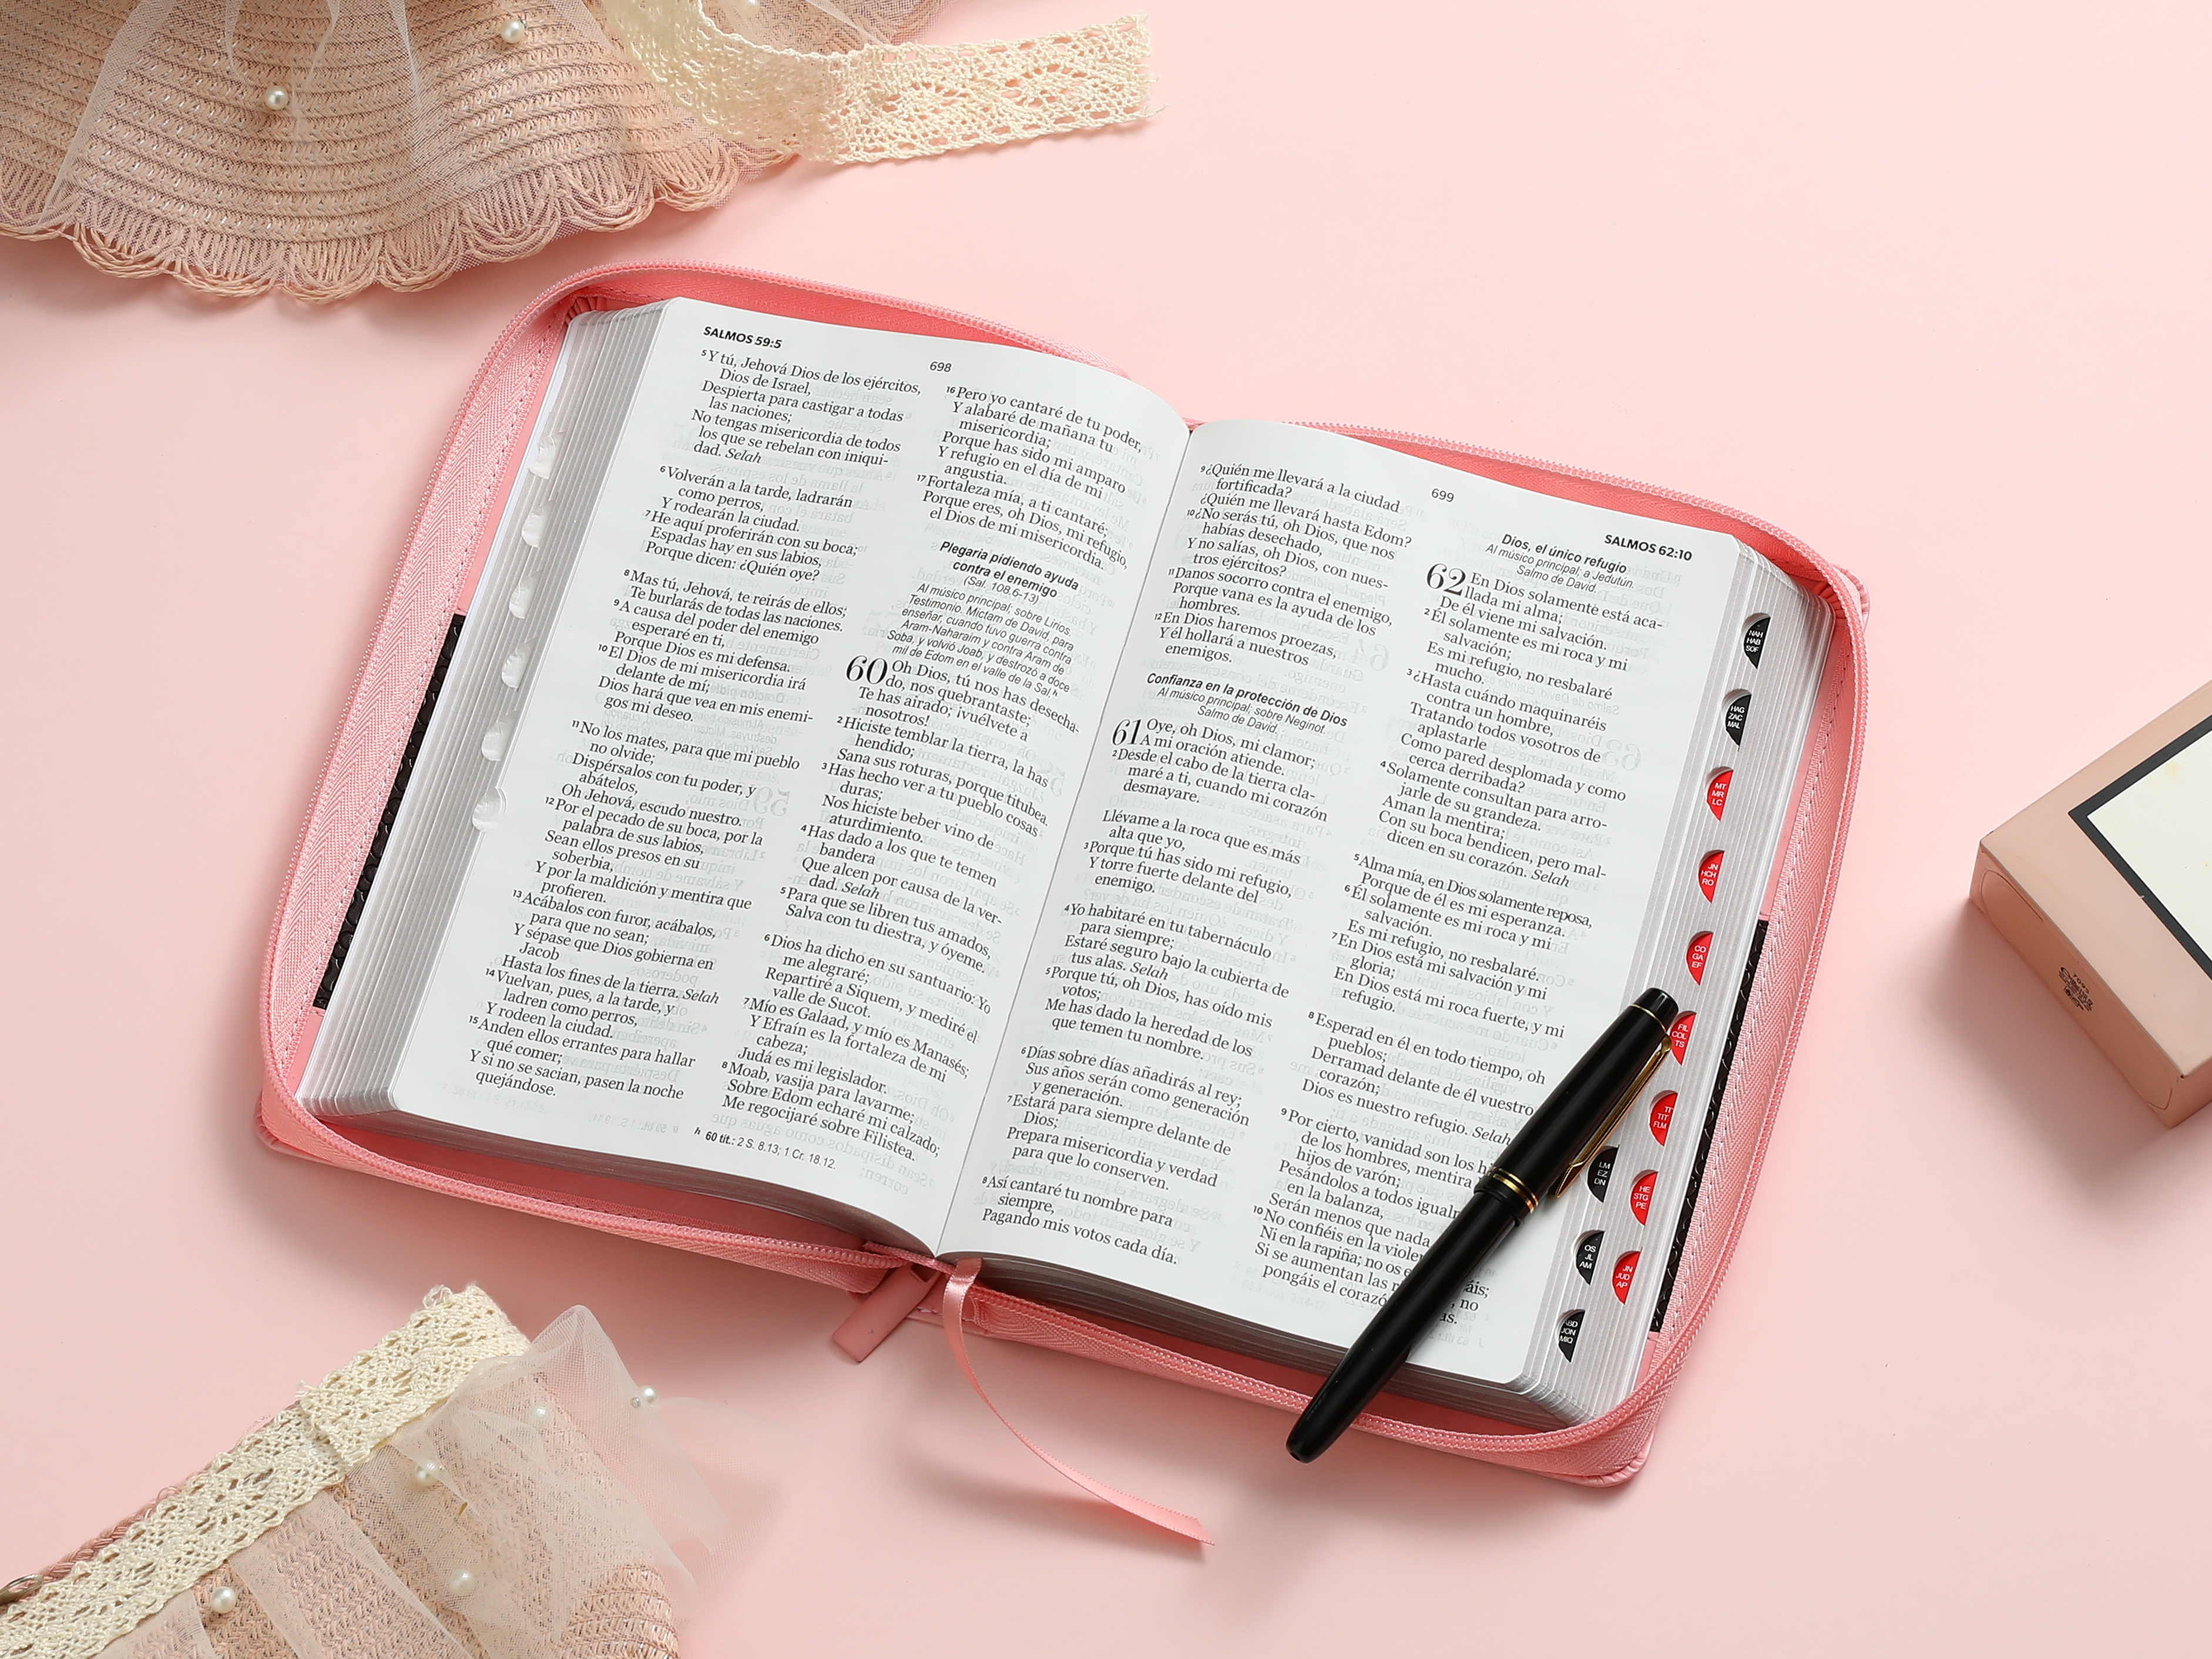 SALMOS 59:5
698
5 Y tú, Jehová Dios de los ejércitos,
Dios de Israel,
Despierta para castigar a todas
las naciones;
No tengas misericordia de todos
los que se rebelan con iniqui-
dad. Selah
6 Volverán a la tarde, ladrarán
como perros,
Y rodearán la ciudad.
7 He aquí proferirán con su boca;
Espadas hay en sus labios,
Porque dicen: ¿Quién oye?
8 Mas tú, Jehová, te reirás de ellos;
Te burlarás de todas las naciones.
9 A causa del poder del enemigo
esperaré en ti,
Porque Dios es mi defensa.
10 El Dios de mi misericordia irá
delante de mí;
Dios hará que vea en mis enemi-
gos mi deseo.
11 No los mates, para que mi pueblo
no olvide;
Dispérsalos con tu poder, y
abátelos,
Oh Jehová, escudo nuestro.
12 Por el pecado de su boca, por la
palabra de sus labios,
Sean ellos presos en su
soberbia,
Y por la maldición y mentira que
profieren.
13 Acábalos con furor, acábalos,
para que no sean;
Y sépase que Dios gobierna en
Jacob
Hasta los fines de la tierra. Selah
14 Vuelvan, pues, a la tarde, y
ladren como perros,
Y rodeen la ciudad.
15 Anden ellos errantes para hallar
qué comer;
Y si no se sacian, pasen la noche
quejándose.
16 Pero yo cantaré de tu poder,
Y alabaré de mañana tu
misericordia;
Porque has sido mi amparo
Y refugio en el día de mi
angustia.
17 Fortaleza mía, a ti cantaré;
Porque eres, oh Dios, mi refugio,
el Dios de mi misericordia.
Plegaria pidiendo ayuda
contra el enemigo
(Sal. 108.6-13)
Al músico principal; sobre Lirios.
Testimonio. Mictam de David, para
enseñar, cuando tuvo guerra contra
Aram-Naharaim y contra Aram de
Soba, y volvió Joab, y destrozó a doce
mil de Edom en el valle de la Sal. h
60 Oh Dios, tú nos has desecha-
do, nos quebrantaste;
Te has airado; ¡vuélvete a
nosotros!
2 Hiciste temblar la tierra, la has
hendido;
Sana sus roturas, porque titubea.
3 Has hecho ver a tu pueblo cosas
duras;
Nos hiciste beber vino de
aturdimiento.
4 Has dado a los que te temen
bandera
Que alcen por causa de la ver-
dad. Selah
5 Para que se libren tus amados,
Salva con tu diestra, y óyeme.
6 Dios ha dicho en su santuario: Yo
me alegraré;
Repartiré a Siquem, y mediré el
valle de Sucot.
7 Mío es Galaad, y mío es Manasés;
Y Efraín es la fortaleza de mi
cabeza;
Judá es mi legislador.
8 Moab, vasija para lavarme;
Sobre Edom echaré mi calzado;
Me regocijaré sobre Filistea.
h 60 tít.: 2 S. 8.13; 1 Cr. 18.12.
699
SALMOS 62:10
9 ¿Quién me llevará a la ciudad
fortificada?
¿Quién me llevará hasta Edom?
10 ¿No serás tú, oh Dios, que nos
habías desechado,
Y no salías, oh Dios, con nues-
tros ejércitos?
11 Danos socorro contra el enemigo,
Porque vana es la ayuda de los
hombres.
12 En Dios haremos proezas,
Y él hollará a nuestros
enemigos.
Confianza en la protección de Dios
Al músico principal; sobre Neginot.
Salmo de David.
61 Oye, oh Dios, mi clamor;
A mi oración atiende.
2 Desde el cabo de la tierra cla-
maré a ti, cuando mi corazón
desmayare.
Llévame a la roca que es más
alta que yo,
3 Porque tú has sido mi refugio,
Y torre fuerte delante del
enemigo.
4 Yo habitaré en tu tabernáculo
para siempre;
Estaré seguro bajo la cubierta de
tus alas. Selah
5 Porque tú, oh Dios, has oído mis
votos;
Me has dado la heredad de los
que temen tu nombre.
6 Días sobre días añadirás al rey;
Sus años serán como generación
y generación.
7 Estará para siempre delante de
Dios;
Prepara misericordia y verdad
para que lo conserven.
8 Así cantaré tu nombre para
siempre,
Pagando mis votos cada día.
Dios, el único refugio
Al músico principal; a Jedutún.
Salmo de David.
62 En Dios solamente está aca-
llada mi alma;
De él viene mi salvación.
2 Él solamente es mi roca y mi
salvación;
Es mi refugio, no resbalaré
mucho.
3 ¿Hasta cuándo maquinaréis
contra un hombre,
Tratando todos vosotros de
aplastarle
Como pared desplomada y como
cerca derribada?
4 Solamente consultan para arro-
jarle de su grandeza.
Aman la mentira;
Con su boca bendicen, pero mal-
dicen en su corazón. Selah
5 Alma mía, en Dios solamente reposa,
Porque de él es mi esperanza.
6 Él solamente es mi roca y mi
salvación.
Es mi refugio, no resbalaré.
7 En Dios está mi salvación y mi
gloria;
En Dios está mi roca fuerte, y mi
refugio.
8 Esperad en él en todo tiempo, oh
pueblos;
Derramad delante de él vuestro
corazón;
Dios es nuestro refugio. Selah
9 Por cierto, vanidad son los h
de los hombres, mentira
hijos de varón;
Pesándolos a todos igualm
en la balanza,
Serán menos que nada
10 No confiéis en la violen
Ni en la rapiña; no os e áis;
Si se aumentan las r , no
pongáis el corazó as.
NAH
HAB
SOF
HAG
ZAC
MAL
MT
MR
LC
JN
HCH
RO
CO
GA
EF
FIL
COL
TS
TI
TIT
FLM
LM
EZ
DN
HE
STG
PE
OS
JL
AM
JN
JUD
AP
ABD
JON
MIQ